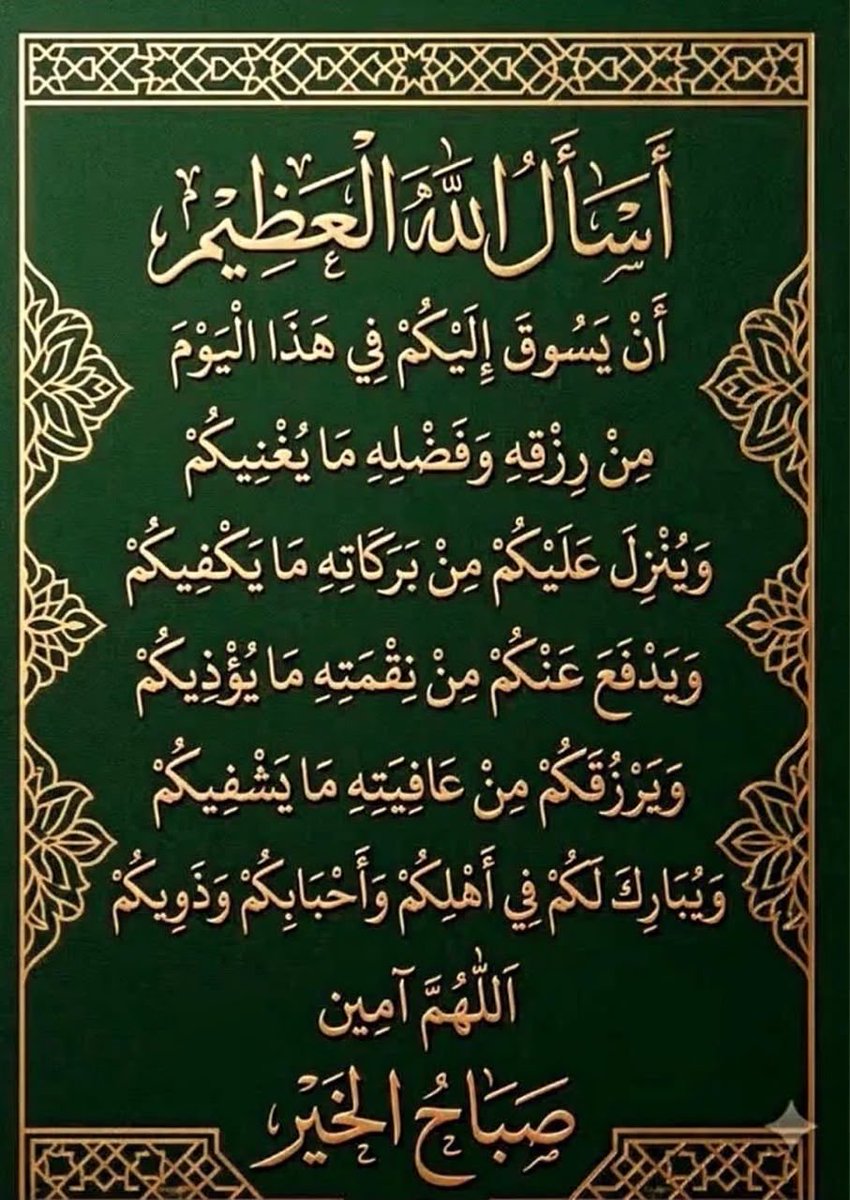 أَسْأَلُ اللَّهَ الْعَظِيْمَ
أَنْ يَسُوقَ إِلَيْكُمْ فِي هَذَا الْيَوْمَ
مِنْ رِزْقِهِ وَفَضْلِهِ مَا يُغْنِيكُمْ
وَيُنْزِلَ عَلَيْكُمْ مِنْ بَرَكَاتِهِ مَا يَكْفِيكُمْ
وَيَدْفَعَ عَنْكُمْ مِنْ نِقْمَتِهِ مَا يُؤْذِيكُمْ
وَيَرْزُقَكُمْ مِنْ عَافِيَتِهِ مَا يَشْفِيكُمْ
وَيُبَارِكَ لَكُمْ فِي أَهْلِكُمْ وَأَحْبَابِكُمْ وَذَوِيكُمْ
اَللّٰهُمَّ آمِين
صَبَاحُ الخَيْر